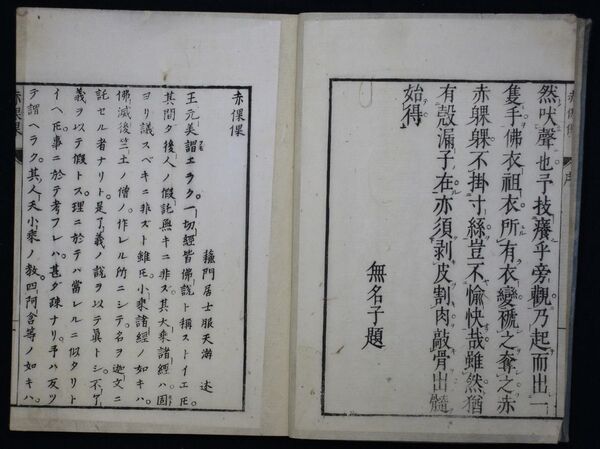 赤倮倮
然吠聲也予技癢乎旁觀乃起而出一
隻手佛衣祖衣所有衣變褫之奪之赤
赤躶躶不掛寸絲豈不愉快哉雖然猶
有殼漏子在亦須剥皮割肉敲骨出髓
始得
無名子題
赤倮倮
居士服天游 述
王元美謂エラク一切經皆佛説ト稱ストイエ𪜈
其間タ後人ノ假託無キニ非ズ其大乘諸經ハ固
ヨリ議スベキニ非ズト雖𪜈小乘諸經ノ如キハ
佛滅後竺土ノ僧ノ作レル所ニシテ名ヲ迦文ニ
託セル者ナリト是了義ノ説ヲ以テ眞トシ不了
義ヲ以テ假トス理ニ於テハ當レルニ似タリト
イヘ𪜈事ニ於テ考フレハ甚ダ疎ナリ予ハ反ツ
テ謂ヘラク其人天小乘ノ教四阿含等ノ如キハ
赤倮倮